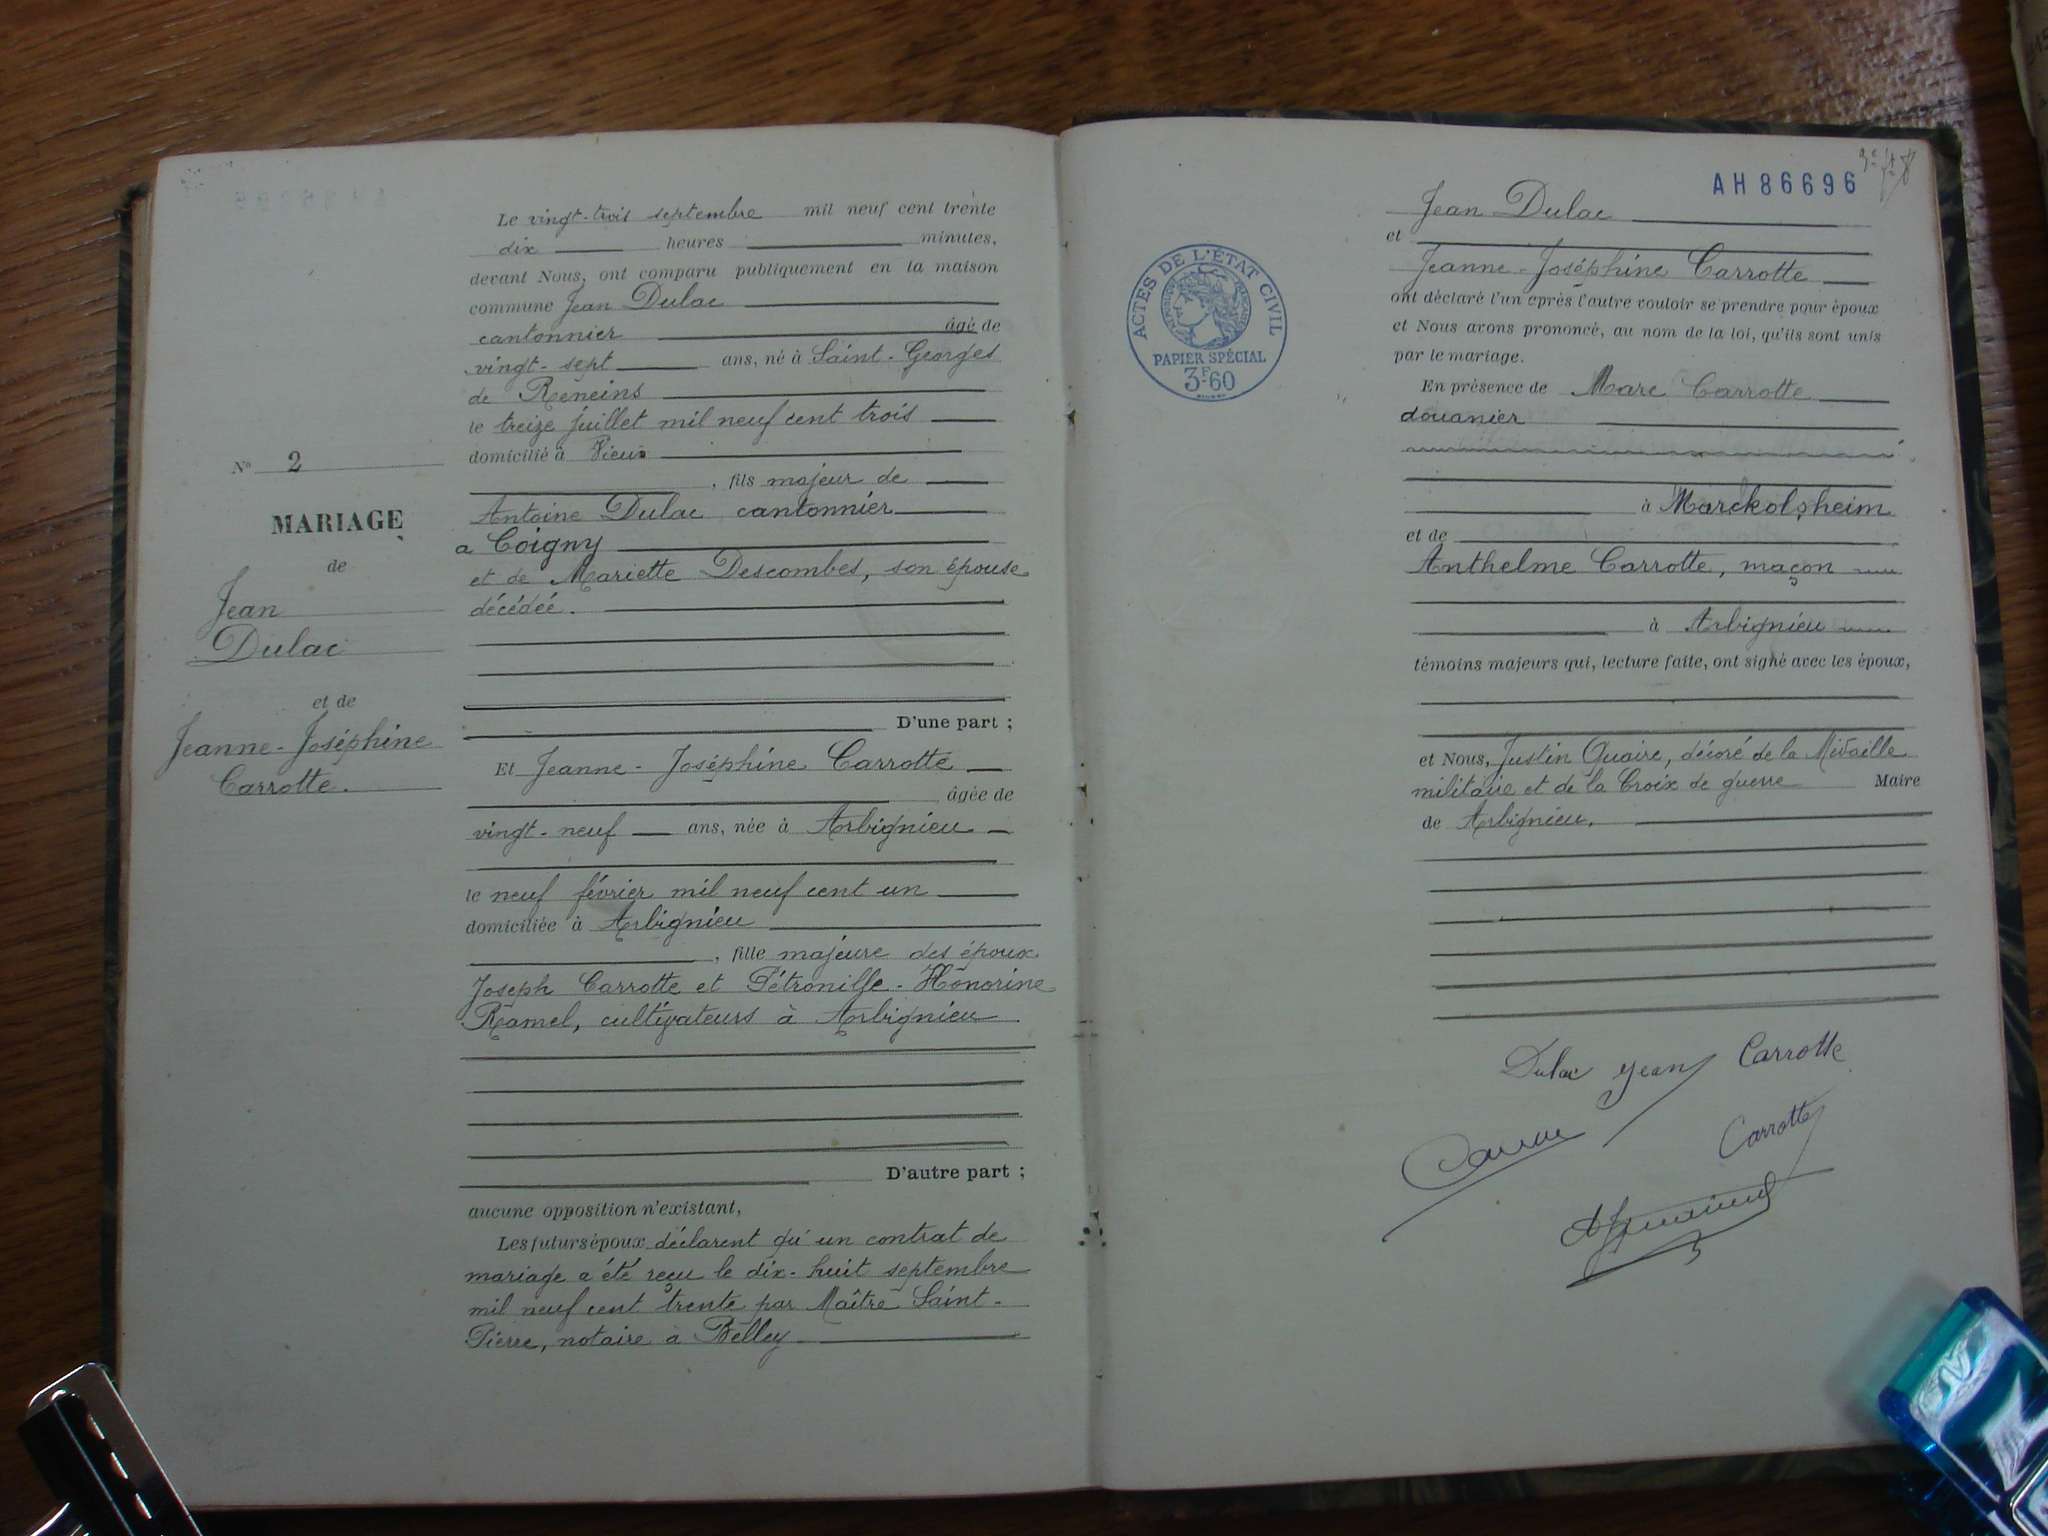 N° 2
MARIAGE
de
Jean
Dulac
et de
Jeanne-Joséphine
Carrotte.
Le vingt-trois septembre mil neuf cent trente
dix heures minutes,
devant Nous, ont comparu publiquement en la maison
commune Jean Dulac
cantonnier âgé de
vingt-sept ans, né à Saint-Georges
de Reneins
le treize juillet mil neuf cent trois
domicilié à Vieu
, fils majeur de
Antoine Dulac cantonnier
a Coigny
et de Mariette Descombes, son épouse
décédée.
D'une part ;
Et Jeanne-Joséphine Carrotte
âgée de
vingt-neuf ans, née à Arbignieu
le neuf février mil neuf cent un
domiciliée à Arbignieu
, fille majeure des époux
Joseph Carrotte et Pétronille-Honorine
Ramel, cultivateurs à Arbignieu
D'autre part ;
aucune opposition n'existant,
Les futurs époux déclarent qu'un contrat de
mariage a été reçu le dix-huit septembre
mil neuf cent trente par Maître Saint-
Pierre, notaire à Belley
AH 86696
ACTES DE L'ÉTAT CIVIL
RÉPUBLIQUE FRANÇAISE
PAPIER SPÉCIAL
3F60
Jean Dulac
et
Jeanne-Joséphine Carrotte
ont déclaré l'un après l'autre vouloir se prendre pour époux
et Nous avons prononcé, au nom de la loi, qu'ils sont unis
par le mariage.
En présence de Marc Carrotte
douanier
à Marckolsheim
et de
Anthelme Carrotte, maçon
à Arbignieu
témoins majeurs qui, lecture faite, ont signé avec les époux,
et Nous, Justin Quaire, décoré de la Médaille
militaire et de la Croix de guerre Maire
de Arbignieu.
Dulac Jean Carrotte
Carrotte